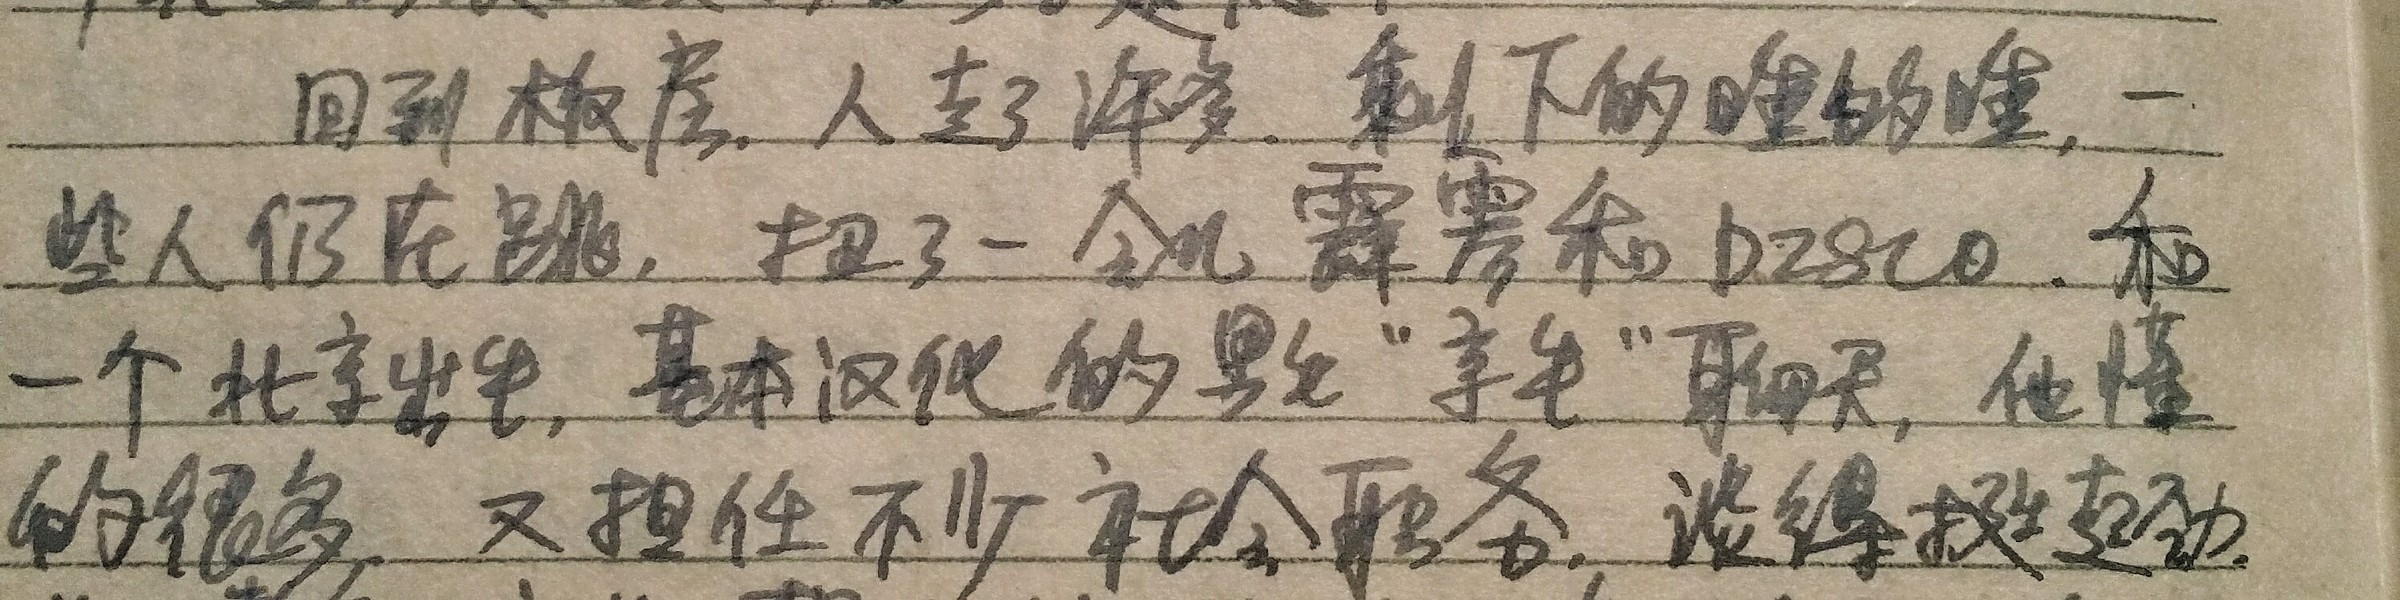 回到板房. 人走了许多. 剩下的睡的睡, 一
些人仍在跳, 扭了一会儿霹雳和DISCO. 和
一个北京出生, 基本汉化的黑人"李生"聊天, 他懂
的很多, 又担任不少社会职务, 谈得挺起劲.